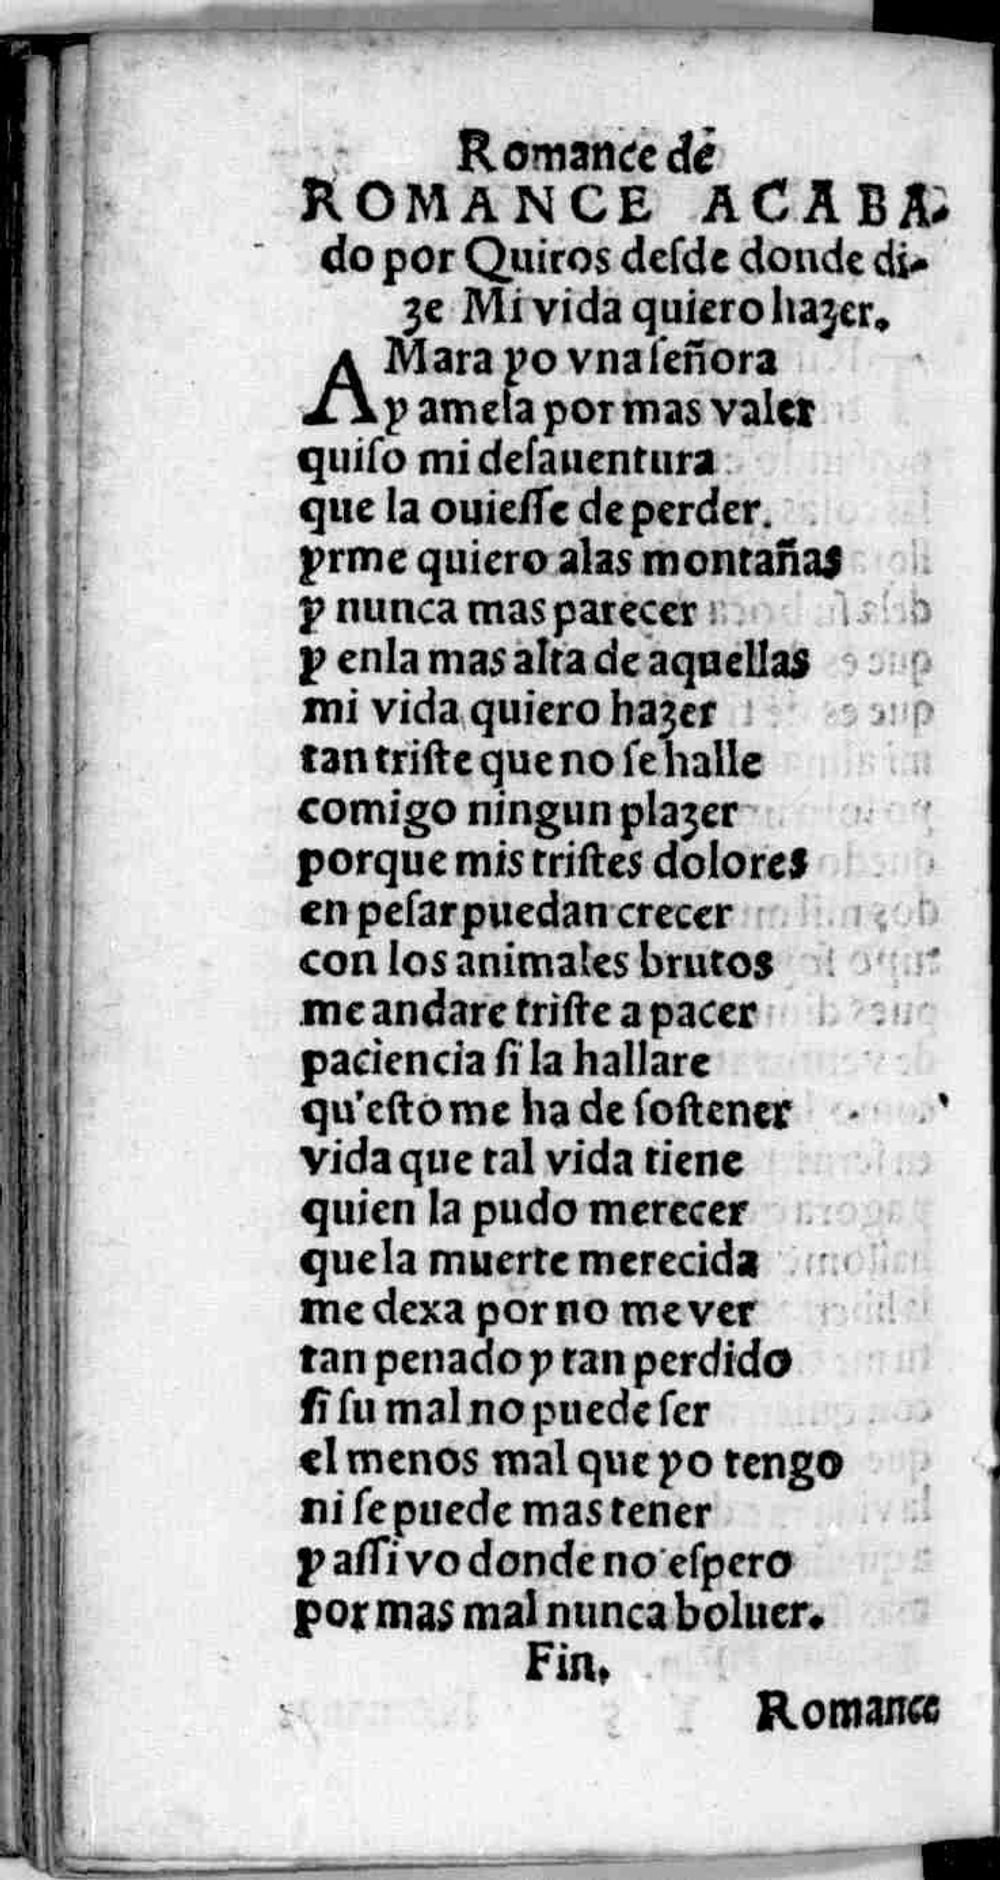 Romance de
ROMANCE ACABA-
do por Quiros deſde donde di-
ze Mi vida quiero hazer.
AMara yo vna ſeñora
y amela por mas valer
quiſo mi deſauentura
que la ouieſſe de perder.
yrme quiero alas montañas
y nunca mas parecer
y enla mas alta de aquellas
mi vida quiero hazer
tan triſte que no ſe halle
comigo ningun plazer
porque mis triſtes dolores
en peſar puedan crecer
con los animales brutos
me andare triſte a pacer
paciencia ſi la hallare
qu'eſto me ha de ſoſtener
vida que tal vida tiene
quien la pudo merecer
que la muerte merecida
me dexa por no me ver
tan penado y tan perdido
ſi ſu mal no puede ſer
el menos mal que yo tengo
ni ſe puede mas tener
y aſſi vo donde no eſpero
por mas mal nunca boluer.
Fin.
Romance